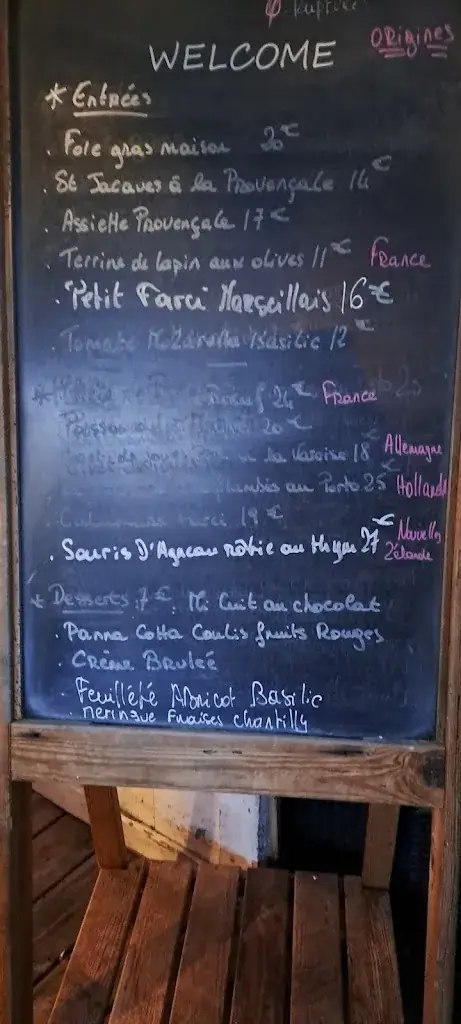 Rupture
ORiGines
WELCOME
* Entrées
. Foie gras maison 20€
. St Jacques à la Provençale 14€
. Assiette Provençale 17€
. Terrine de lapin aux olives 11€ France
. Petit Farci Marseillais 16€
. Tomate Mozarella Basilic 12€
Boeuf 24€ France
20€
la Varoise 18€ Allemagne
flambés au Porto 25€ Hollande
Farci 19€
. Souris D'Agneau rôtie au thym 27€ Nouvelle Zélande
* Desserts 7€. Mi Cuit au chocolat
. Panna Cotta Coulis fruits Rouges
. Crème Brulée
. Feuilleté Abricot Basilic
. Meringue Fraises Chantilly